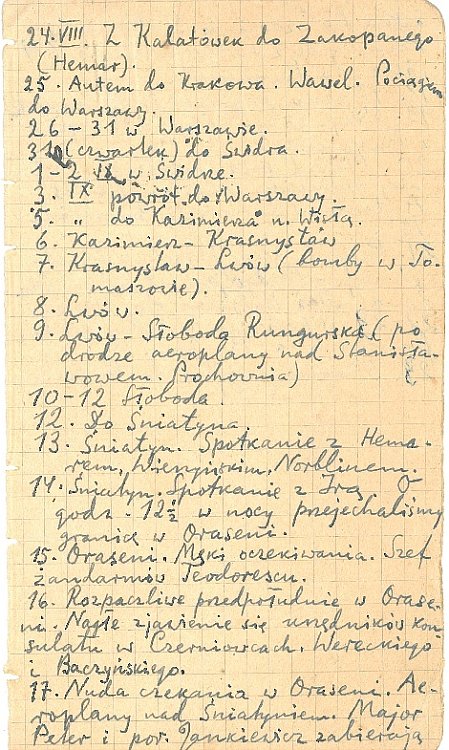 24.VIII. Z Kalatówek do Zakopanego
(Hemar).
25. Autem do Krakowa. Wawel. Pociągiem
do Warszawy.
26–31 w Warszawie.
31 (czwartek) do Świdra.
1–2 IX w Świdrze.
3. IX powrót do Warszawy.
5. " do Kazimierza n. Wisłą.
6. Kazimierz – Krasnystaw
7. Krasnystaw – Lwów (bomby w To-
maszowie).
8. Lwów.
9. Lwów – Słoboda Rungurska (po
drodze aeroplany nad Stanisła-
wowem. Prochownia)
10–12 Słoboda.
12. Do Śniatyna.
13. Śniatyn. Spotkanie z Hema-
rem, Wieniawskim, Norblinem.
14. Śniatyn. Spotkanie z Irą
godz. 12½ w nocy przejechaliśmy
granicę w Oraseni.
15. Oraseni. Męki oczekiwania. Szef
żandarmów Teodorescu.
16. Rozpaczliwe przedpołudnie w Orase-
ni. Nagłe zjawienie się urzędników kon-
sulatu w Czerniowcach. Wereckiego
i Baczyńskiego.
17. Nuda czekania w Oraseni. Ae-
roplany nad Śniatyniem. Major
Peter i por. Jankiewicz zabierają